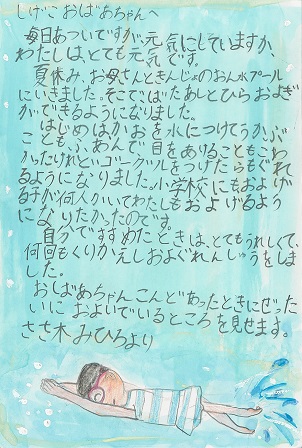 しげこおばあちゃんへ
毎日あついですが、元気にしていますか、
わたしは、とても元気です。
夏休み、お母さんときんじょのおん水プール
にいきました。そこで、ばたあしとひらおよぎ
ができるようになりました。
はじめはかおを水につけてうかぶ
こともふあんで目をあけることもこわ
かったけれどゴーグルをつけたらもぐれ
るようになりました。小学校にもおよげ
る子が何人かいてわたしもおよげるよう
になりたかったのです。
自分ですすめたときは、とてもうれしくて、
何回もくりかえしおよぐれんしゅうをしま
した。
おばあちゃんこんどあったときにぜった
いにおよいでいるところを見せます。
ささ木みひろより